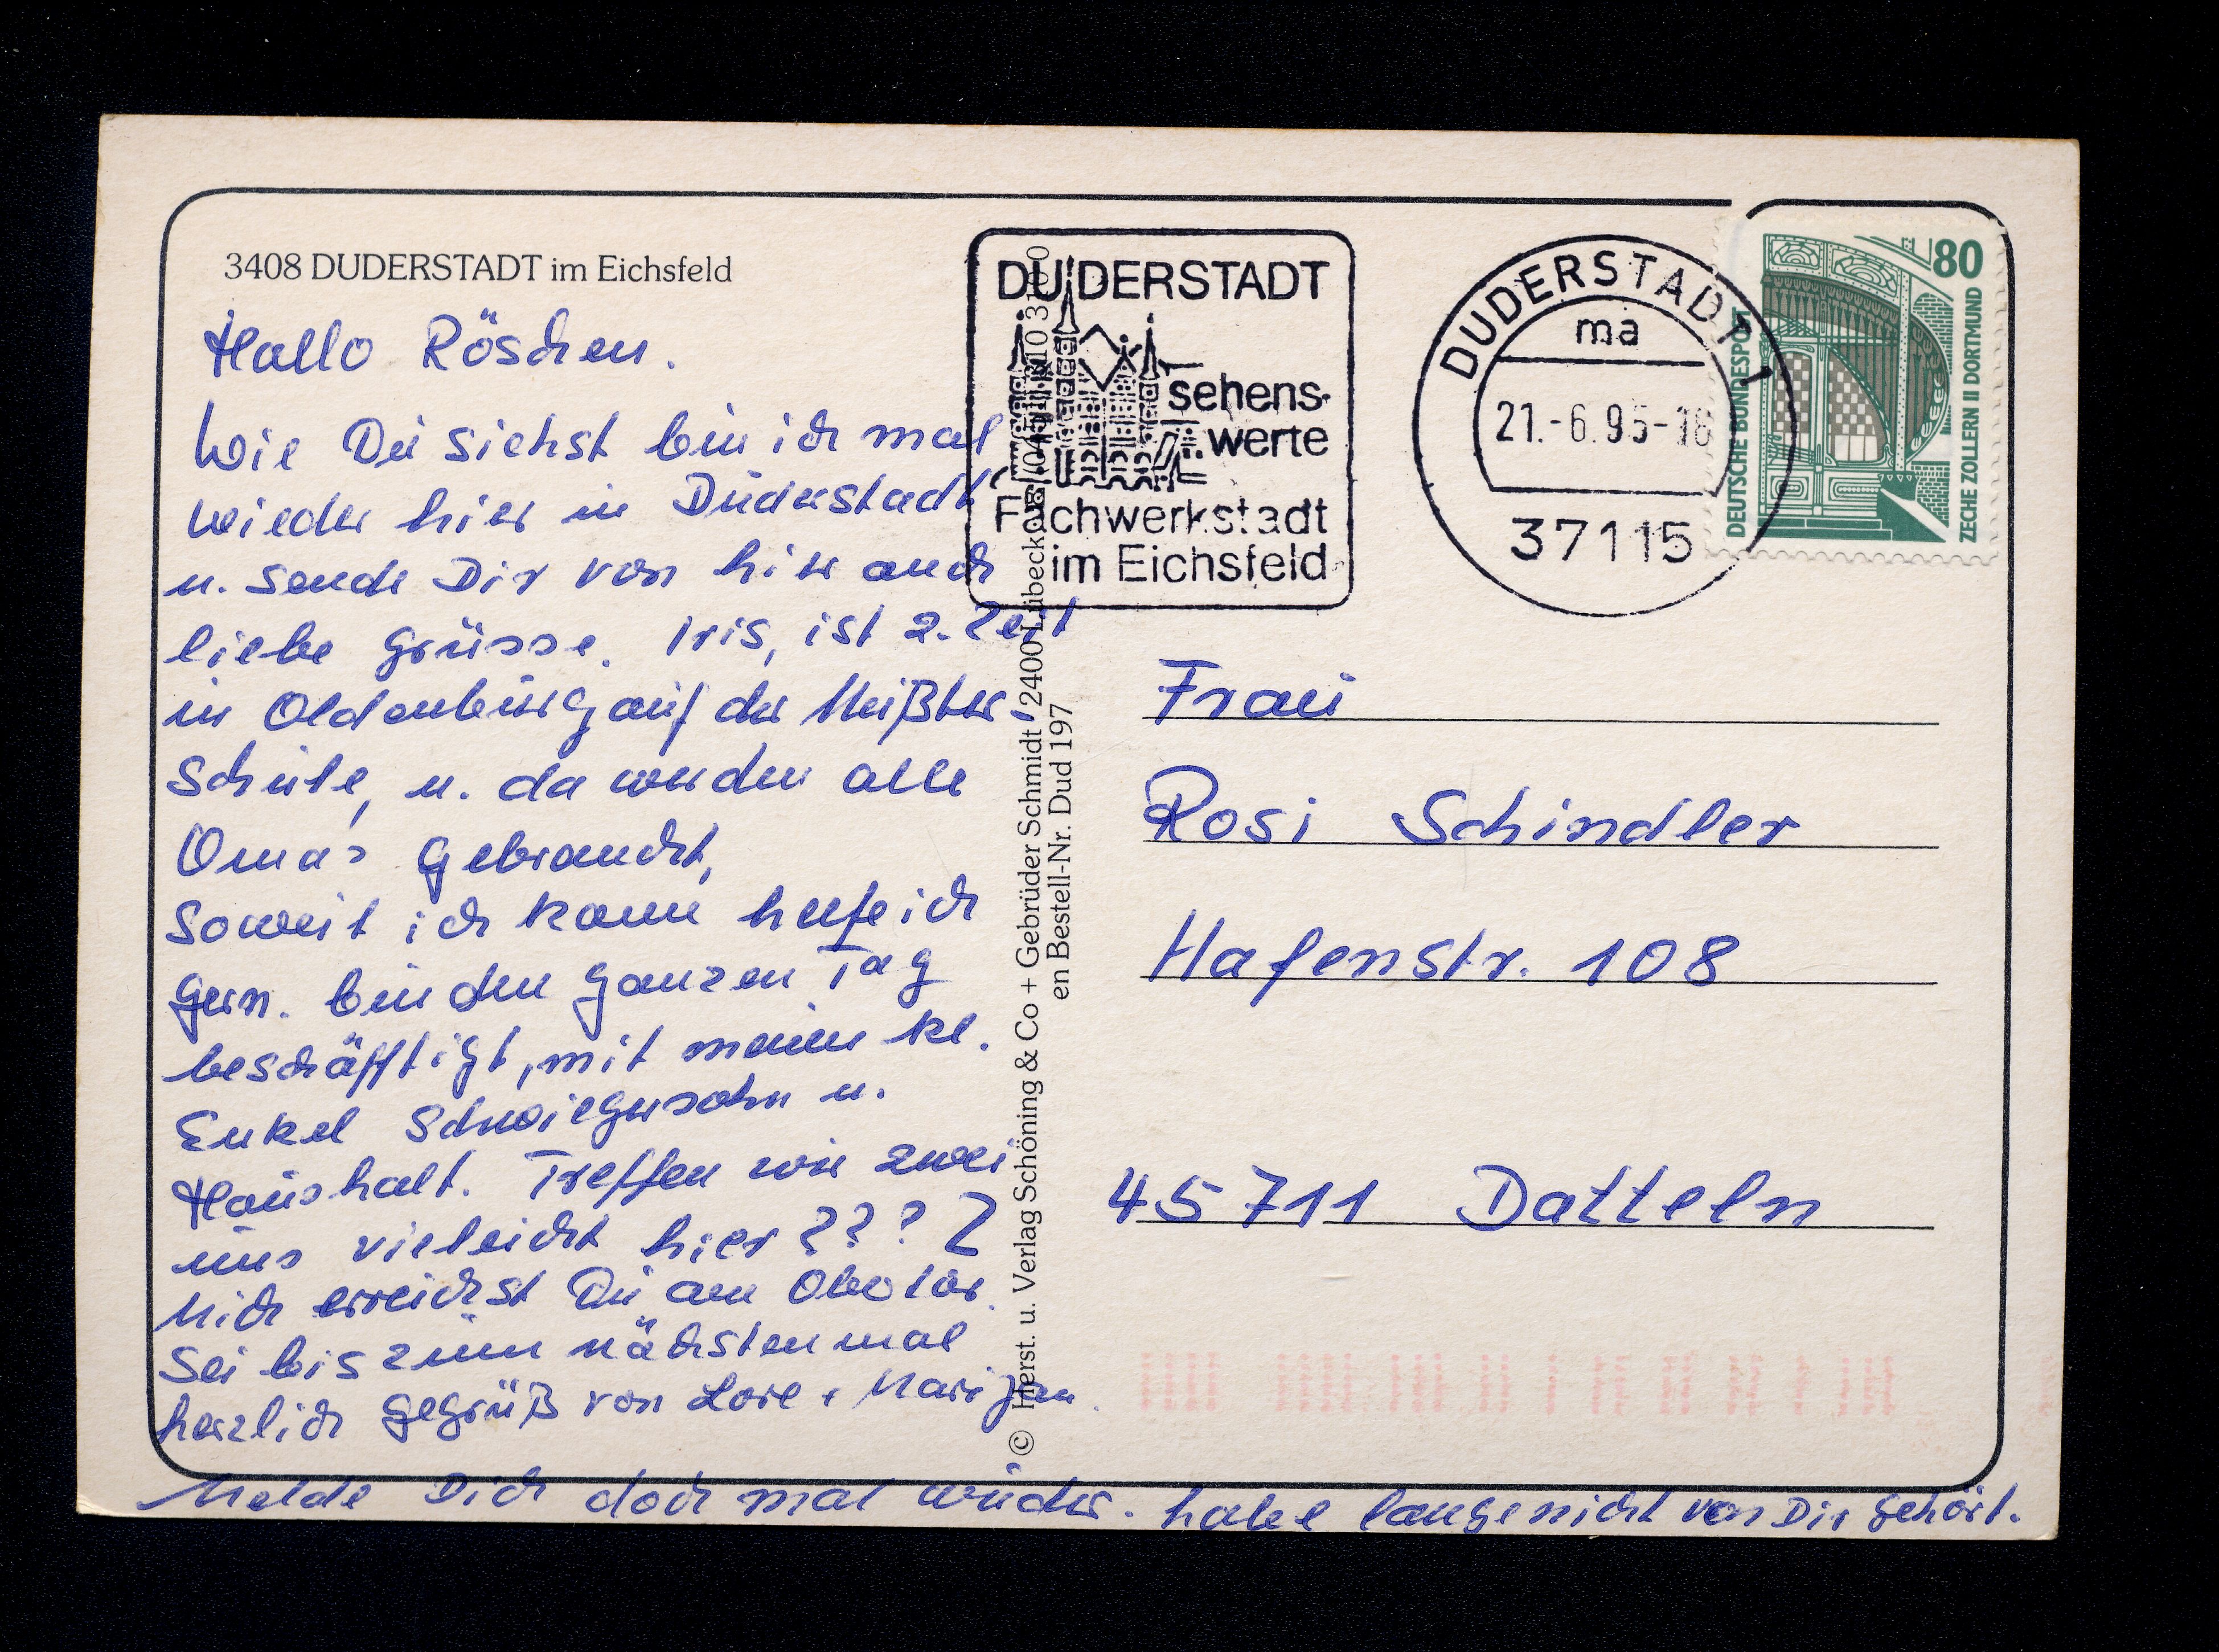 3408 DUDERSTADT im Eichsfeld
Hallo Röschen.
Wie Du siehst bin ich mal
wieder hier in Duderstadt
u. sende Dir von hier auch
liebe Grüsse. Iris, ist z. Zeit
in Oldenburg auf der Meißter-
Schule, u. da werden alle
Oma's gebraucht,
Soweit ich kann helfe ich
gern. bin den ganzen Tag
beschäfftigt, mit meinem kl.
Enkel Schwiegersohn u.
Haushalt. Treffen wir zwei
uns vieleicht hier ? ? ? ?
Mich erreichst Du am Obertor.
Sei bis zum nächstenmal
herzlich gegrüß von Lore + Marijan.
Melde Dich doch mal wieder. habe lange nicht von Dir gehört.
© Herst. u. Verlag Schöning & Co + Gebrüder Schmidt · 2400 Lübeck
en Bestell-Nr. Dud 197
DUDERSTADT
sehens-
werte
Fachwerkstadt
im Eichsfeld
DUDERSTADT 1
ma
21.-6.95-18
37115
80
DEUTSCHE BUNDESPOST
ZECHE ZOLLERN II DORTMUND
Frau
Rosi Schindler
Hafenstr. 108
45711 Datteln